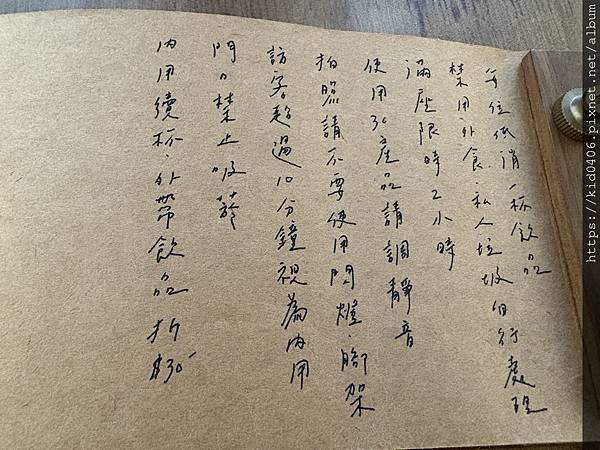 每位低消1杯飲品
禁用外食.私人垃圾自行處理
滿座限時2小時
使用3C產品請調靜音
拍照請不要使用閃燈.腳架
訪客超過10分鐘視為內用
門口禁止吸菸
內用續杯.外帶飲品折$30
https://kid0406.pixnet.net/album